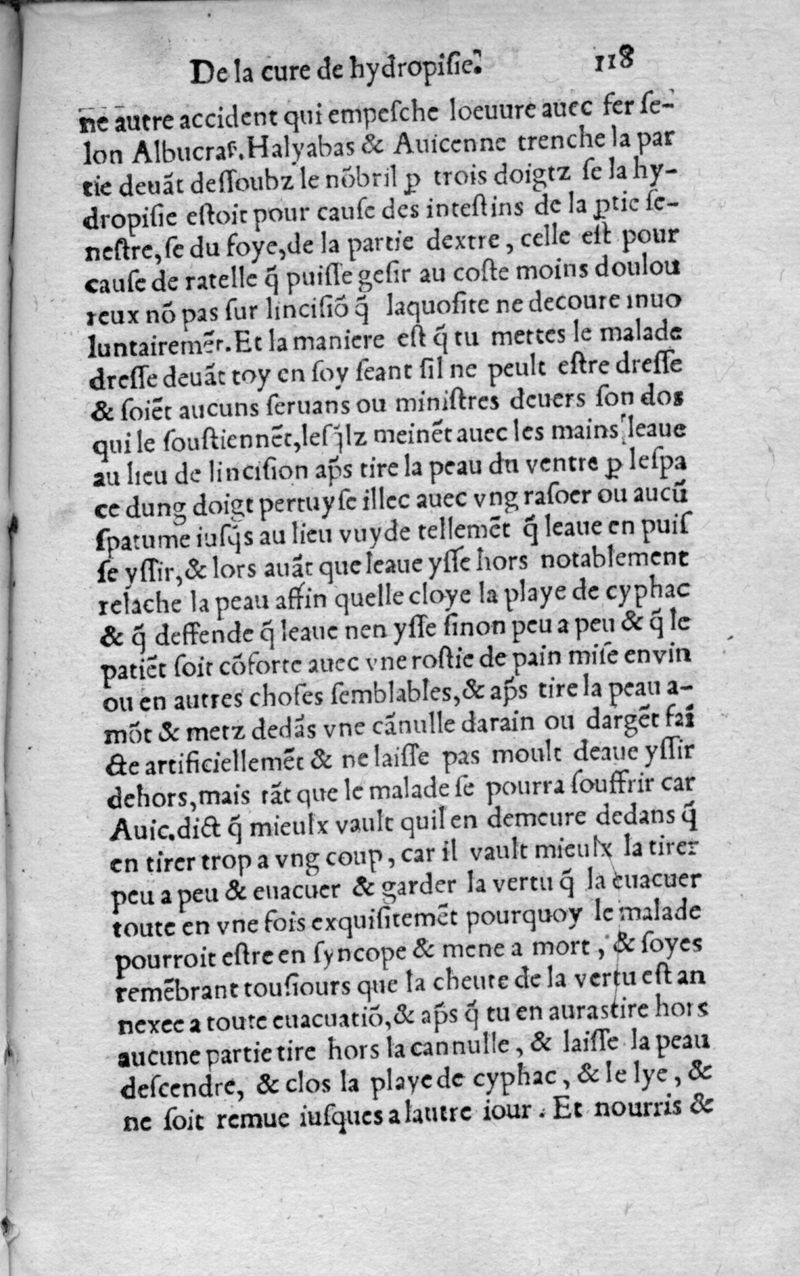 De la cure de hydropiſie. 118
ne autre accident qui empeſche loeuure auec fer ſe-
lon Albucraſ. Halyabas & Auicenne trenche la par
tie deuãt deſſoubz le nõbril ꝑ trois doigtz ſe la hy-
dropiſie eſtoit pour cauſe des inteſtins de la ꝑtie ſe-
neſtre, ſe du foye, de la partie dextre, celle eſt pour
cauſe de ratelle q̃ puiſſe geſir au coſte moins doulou
reux nõ pas ſur linciſiõ q̃ laquoſite ne decoure inuo
luntairemẽt. Et la maniere eſt q̃ tu mettes le malade
dreſſe deuãt toy en ſoy ſeant ſil ne peult eſtre dreſſe
& ſoiẽt aucuns ſeruans ou miniſtres deuers ſon dos
qui le ſouſtiennẽt, leſq̃lz meinẽt auec les mains leaue
au lieu de linciſion ap̃s tire la peau du ventre ꝑ leſpa
ce dung doigt pertuyſe illec auec vng raſoer ou aucũ
ſpatume iuſq̃s au lieu vuyde tellemẽt q̃ leaue en puiſ
ſe yſſir, & lors auãt que leaue yſſe hors notablement
relache la peau affin quelle cloye la playe de cyphac
& q̃ deffende q̃ leaue nen yſſe ſinon peu a peu & q̃ le
patiẽt ſoit cõforte auec vne roſtie de pain miſe en vin
ou en autres choſes ſemblables, & ap̃s tire la peau a-
mõt & metz dedãs vne cãnulle darain ou dargẽt fai
cte artificiellemẽt & ne laiſſe pas moult deaue yſſir
dehors, mais tãt que le malade ſe pourra ſouffrir car
Auic. dict q̃ mieulx vault quil en demeure dedans q̃
en tirer trop a vng coup, car il vault mieulx la tirer
peu a peu & euacuer & garder la vertu q̃ la euacuer
toute en vne fois exquiſitemẽt pourquoy le malade
pourroit eſtre en ſyncope & mene a mort, & ſoyes
remẽbrant touſiours que la cheute de la vertu eſt an
nexee a toute euacuatiõ, & ap̃s q̃ tu en auras tire hors
aucune partie tire hors la cannulle, & laiſſe la peau
deſcendre, & clos la playe de cyphac, & le lye, &
ne ſoit remue iuſques a lautre iour. Et nourris &